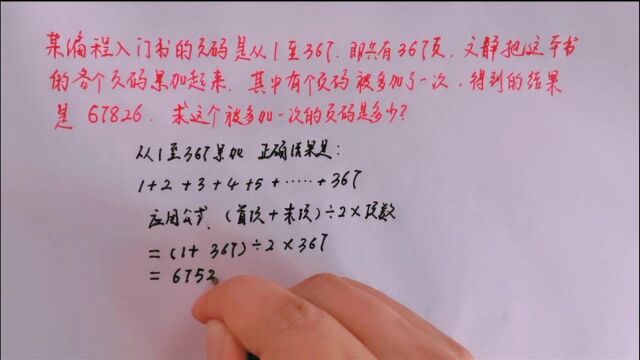 某编程入门书的页码是从1至367.即共有367页.文静把这本书
的各个页码累加起来.其中有个页码被多加了一次.得到的结果
是 67826.求这个被多加一次的页码是多少?
从1至367累加 正确结果是:
1+2+3+4+5+……+367
应用公式.(首项+末项)÷2×项数
=(1+367)÷2×367
=6752